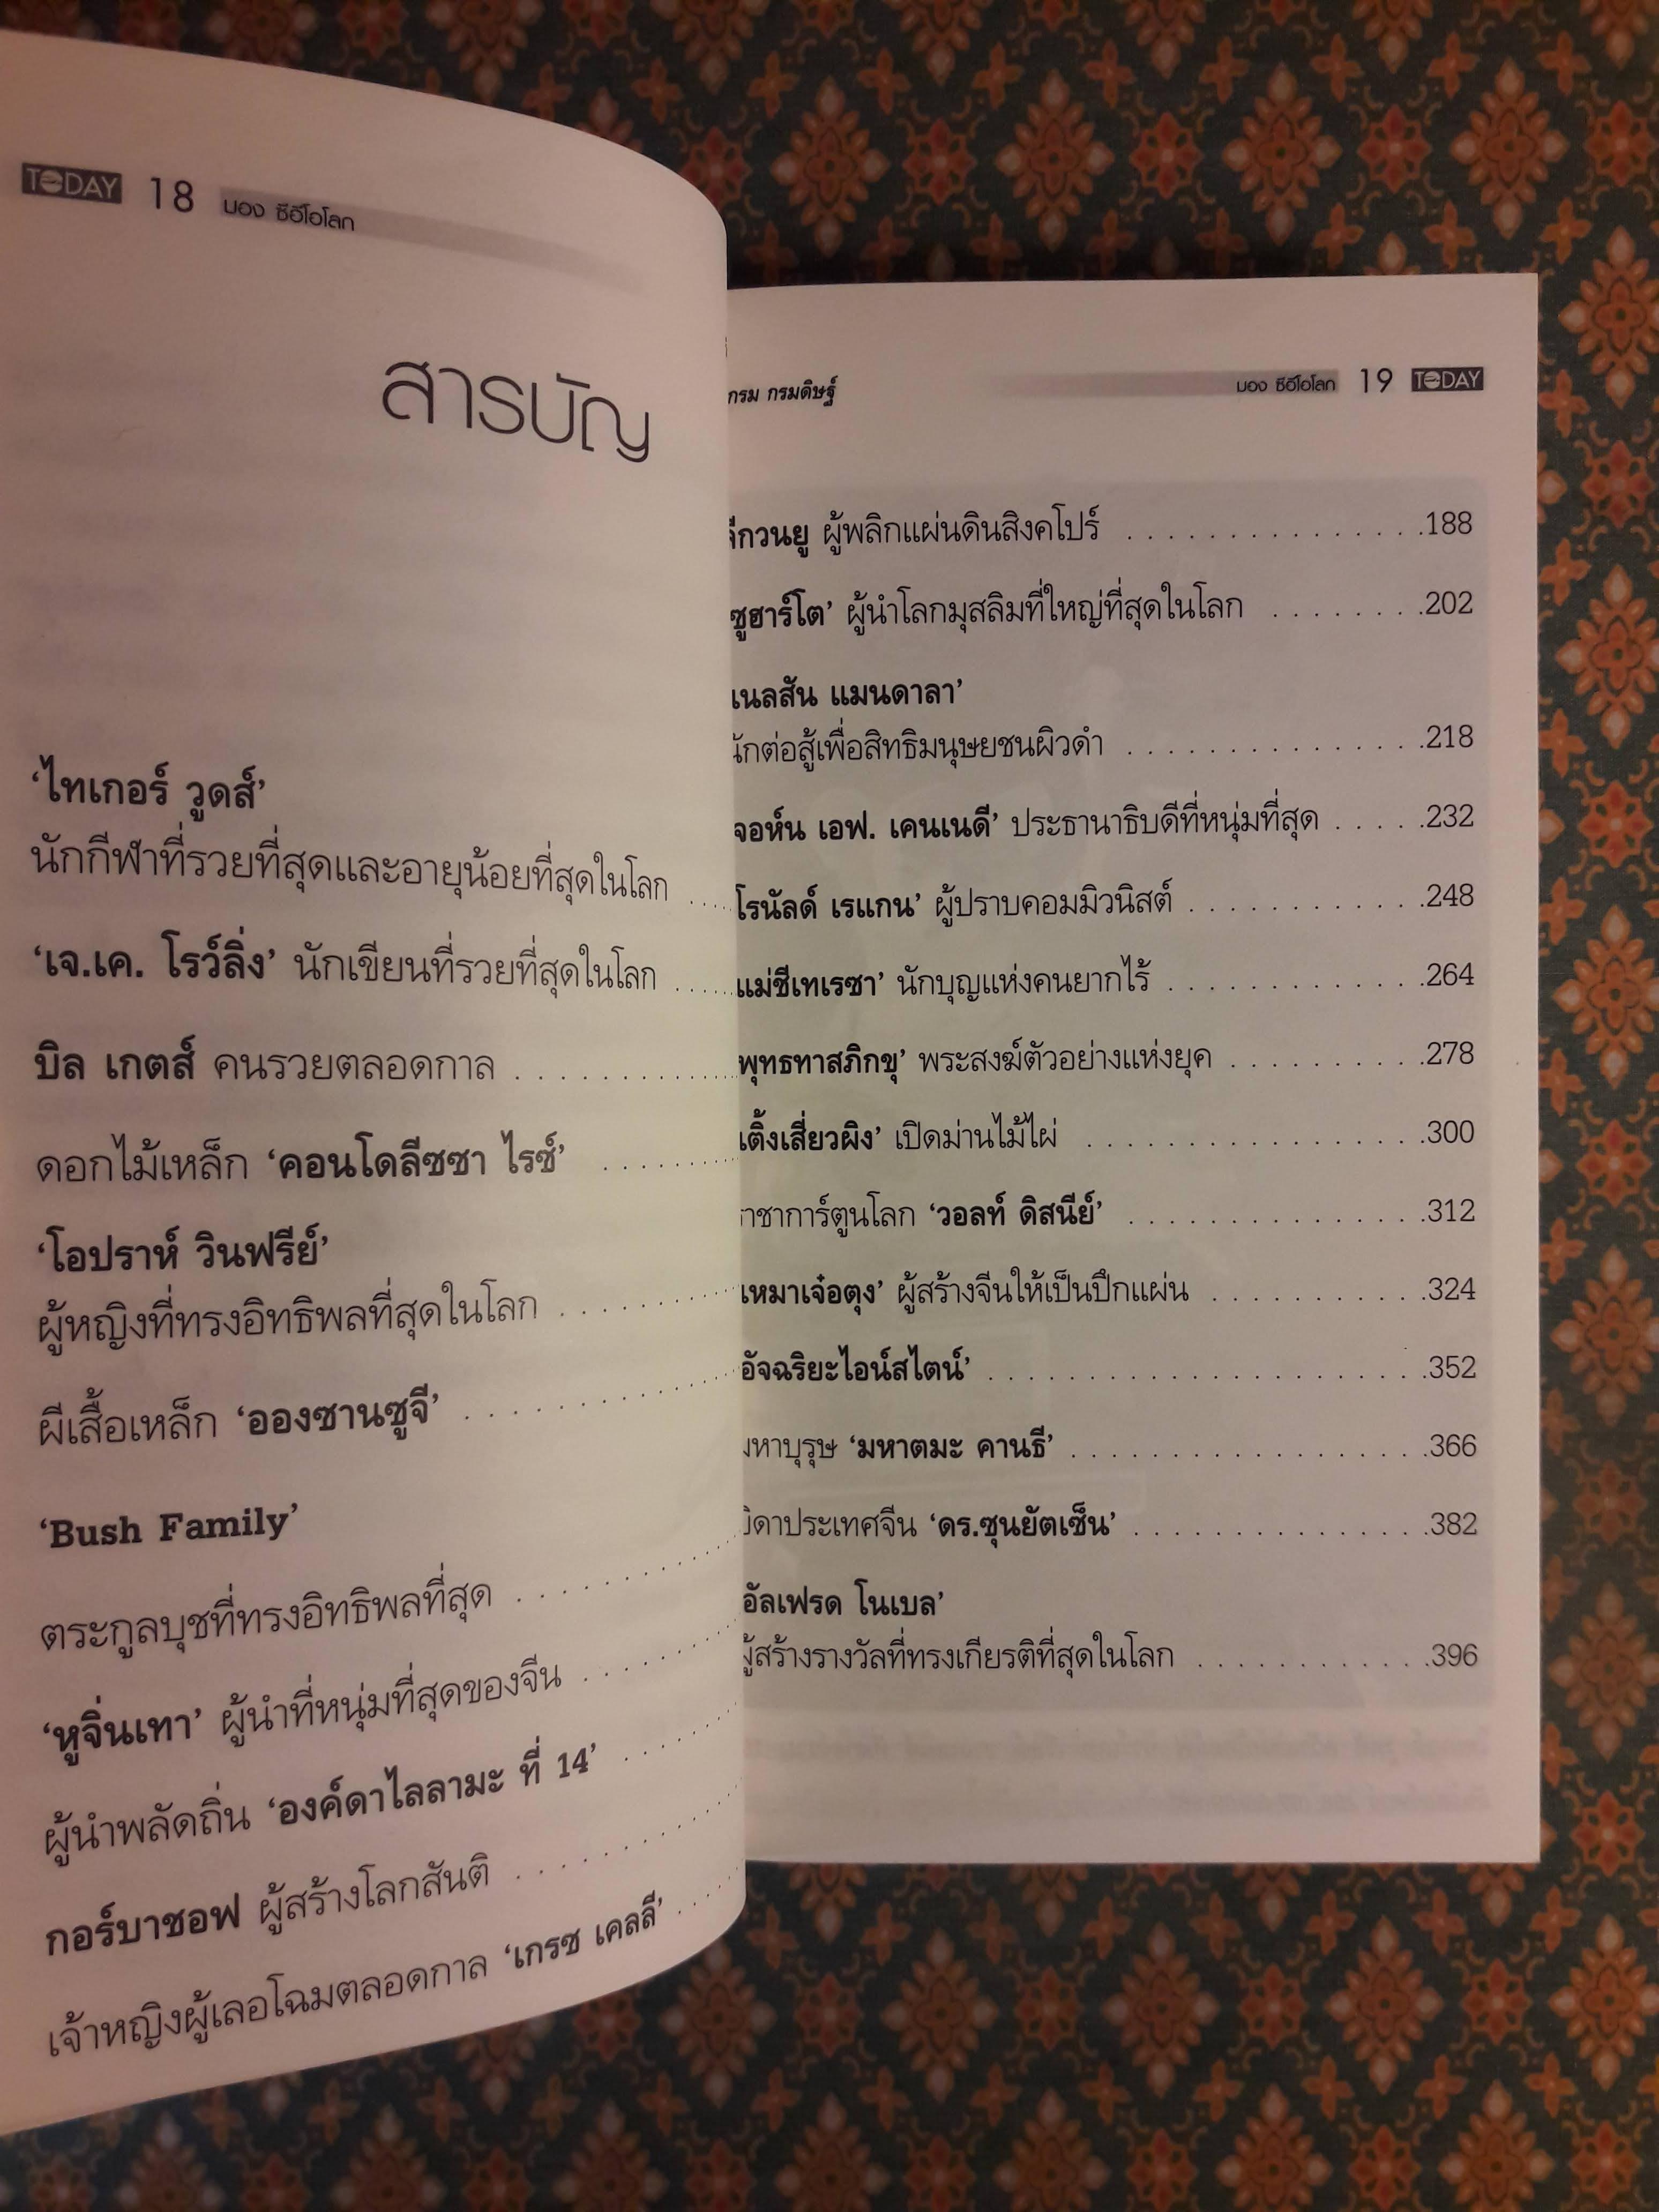 TODAY 18 มอง ซีอีโอโลก
สารบัญ
‘ไทเกอร์ วูดส์’
นักกีฬาที่รวยที่สุดและอายุน้อยที่สุดในโลก .....
‘เจ.เค. โรว์ลิ่ง’ นักเขียนที่รวยที่สุดในโลก ......
บิล เกตส์ คนรวยตลอดกาล . . . . . . . . . . . .
ดอกไม้เหล็ก ‘คอนโดลีซซา ไรซ์’ . . . . . . . . . .
‘โอปราห์ วินฟรีย์’
ผู้หญิงที่ทรงอิทธิพลที่สุดในโลก . . . . . . . . . .
ผีเสื้อเหล็ก ‘อองซานซูจี’ . . . . . . . . . . . . .
‘Bush Family’
ตระกูลบุชที่ทรงอิทธิพลที่สุด . . . . . . . . . . .
‘หูจิ่นเทา’ ผู้นำที่หนุ่มที่สุดของจีน . . . . . . . . .
ผู้นำพลัดถิ่น ‘องค์ดาไลลามะ ที่ 14’ . . . . . . .
กอร์บาชอฟ ผู้สร้างโลกสันติ . . . . . . . . . . .
เจ้าหญิงผู้เลอโฉมตลอดกาล ‘เกรซ เคลลี่’ . . . . .
กรม กรมดิษฐ์ มอง ซีอีโอโลก 19 TODAY
ลีกวนยู ผู้พลิกแผ่นดินสิงคโปร์ . . . . . . . . . . . . . . .188
ซูฮาร์โต’ ผู้นำโลกมุสลิมที่ใหญ่ที่สุดในโลก . . . . . . . .202
เนลสัน แมนดาลา’
นักต่อสู้เพื่อสิทธิมนุษยชนผิวดำ . . . . . . . . . . . . . . .218
จอห์น เอฟ. เคนเนดี’ ประธานาธิบดีที่หนุ่มที่สุด . . . . .232
โรนัลด์ เรแกน’ ผู้ปราบคอมมิวนิสต์ . . . . . . . . . . . .248
แม่ชีเทเรซา’ นักบุญแห่งคนยากไร้ . . . . . . . . . . . . .264
พุทธทาสภิกขุ’ พระสงฆ์ตัวอย่างแห่งยุค . . . . . . . . . .278
เติ้งเสี่ยวผิง’ เปิดม่านไม้ไผ่ . . . . . . . . . . . . . . . . .300
าชาการ์ตูนโลก ‘วอลท์ ดิสนีย์’ . . . . . . . . . . . . . . .312
เหมาเจ๋อตุง’ ผู้สร้างจีนให้เป็นปึกแผ่น . . . . . . . . . . .324
อัจฉริยะไอน์สไตน์’ . . . . . . . . . . . . . . . . . . . . . .352
มหาบุรุษ ‘มหาตมะ คานธี’ . . . . . . . . . . . . . . . . . .366
บิดาประเทศจีน ‘ดร.ซุนยัตเซ็น’ . . . . . . . . . . . . . . .382
อัลเฟรด โนเบล’
ผู้สร้างรางวัลที่ทรงเกียรติที่สุดในโลก . . . . . . . . . . . .396